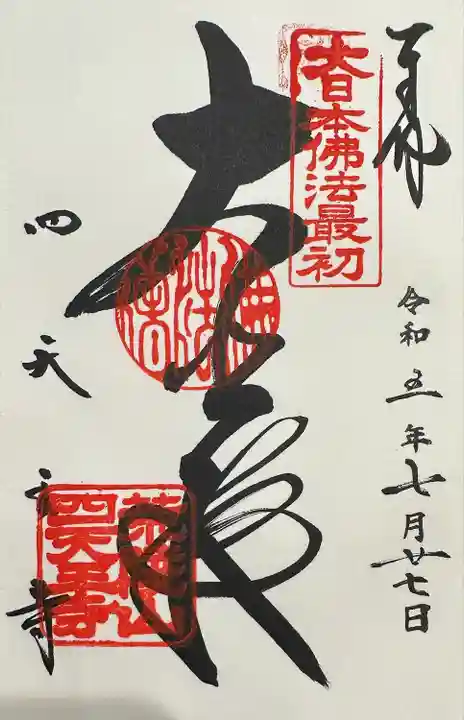 奉拝
大日本佛法最初
令和五年七月廿七日
大
四天王寺
荒陵山
四天王寺